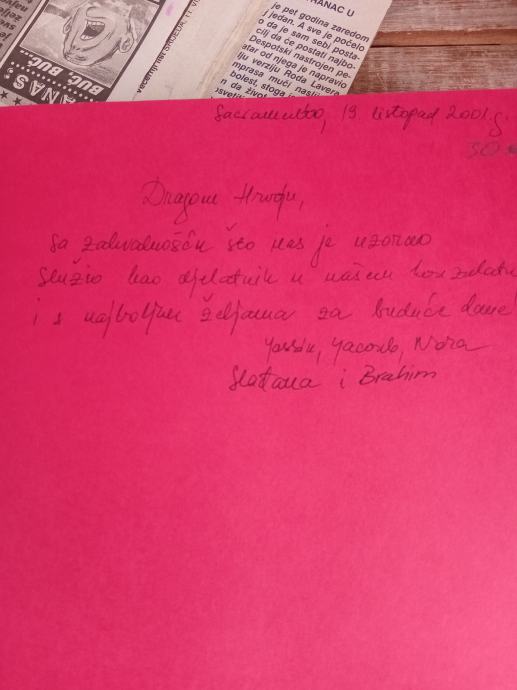 ANAS:
BUĆ, BUĆ...
HANAC U
je pet godina zaredom
jedan. A sve je počelo
o da je sam sebi posta-
cilj da će postati najbo-
Despotski nastrojen pe-
atar od njega je napravio
lju verziju Roda Lavera
mprasa mući
bolest, stoga
n da živ
Sacramento, 19. listopad 2001.g.
30
Dragom Hrvoju,
sa zahvalnošću što nas je uzorno
služio kao djelatnik u našem konzulatu
i s najboljim željama za buduće dane
Yassin, Yacoub, Nora
Slađana i Brahim